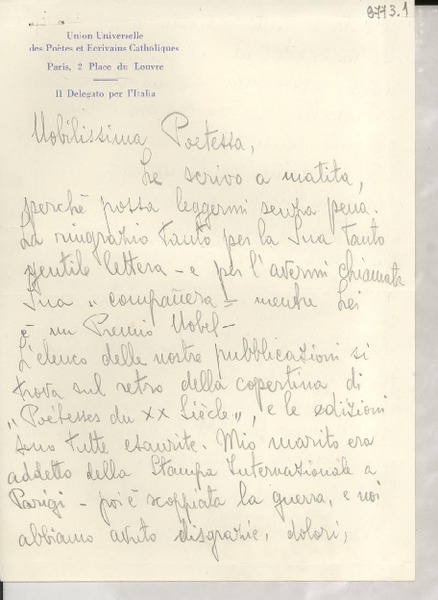 8773.1
Union Universelle
des Poètes et Ecrivains Catholiques
Paris, 2 Place du Louvre
Il Delegato per l'Italia
Nobilissima Poetessa,
Le scrivo a matita,
perché possa leggermi senza pena.
La ringrazio tanto per la Sua tanto
gentile lettera - e per l'avermi chiamata
Sua "compañera" - mentre Lei
è un Premio Nobel -
L'elenco delle nostre pubblicazioni si
trova sul retro della copertina di
"Poétesses du XX Siècle", e le edizioni
sono tutte esaurite. Mio marito era
addetto della Stampa Internazionale a
Parigi - poi è scoppiata la guerra, e noi
abbiamo avuto disgrazie, dolori,